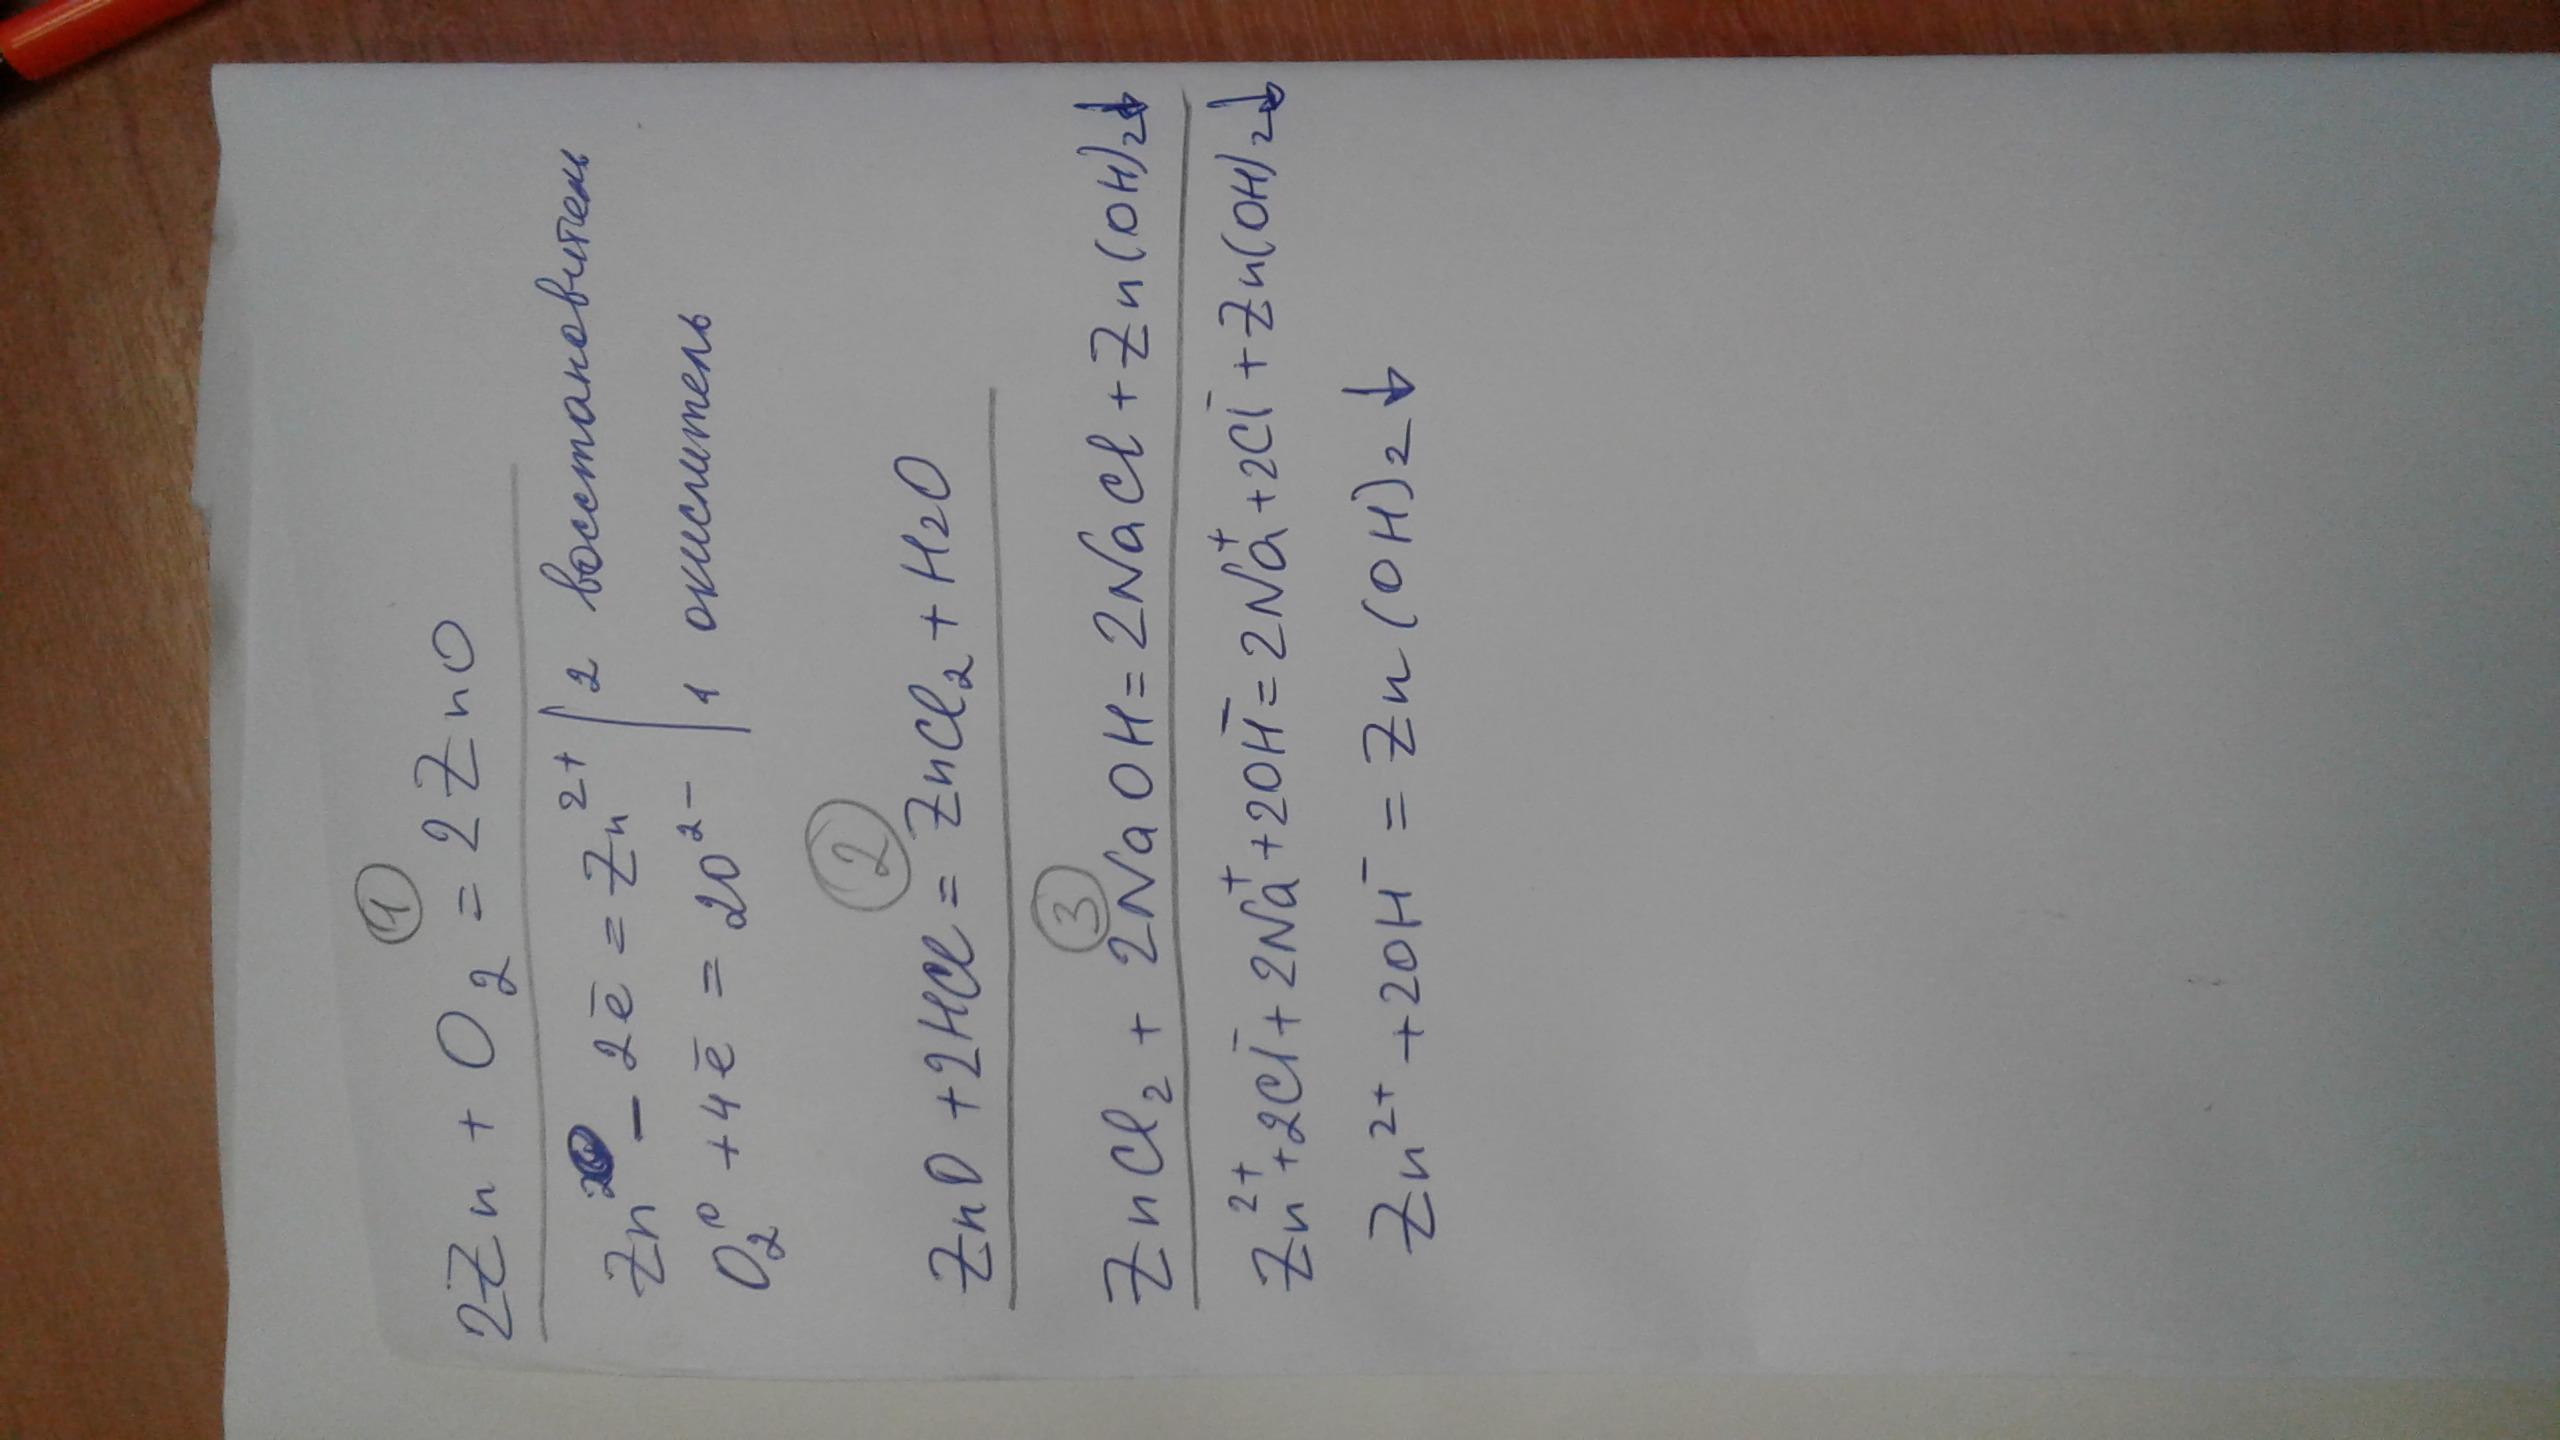 ①
2Zn + O₂ = 2ZnO
Zn⁰ - 2ē = Zn²⁺ | 2 восстановитель
O₂⁰ + 4ē = 2O²⁻ | 1 окислитель
②
ZnO + 2HCl = ZnCl₂ + H₂O
③
ZnCl₂ + 2NaOH = 2NaCl + Zn(OH)₂↓
Zn²⁺ + 2Cl⁻ + 2Na⁺ + 2OH⁻ = 2Na⁺ + 2Cl⁻ + Zn(OH)₂↓
Zn²⁺ + 2OH⁻ = Zn(OH)₂↓